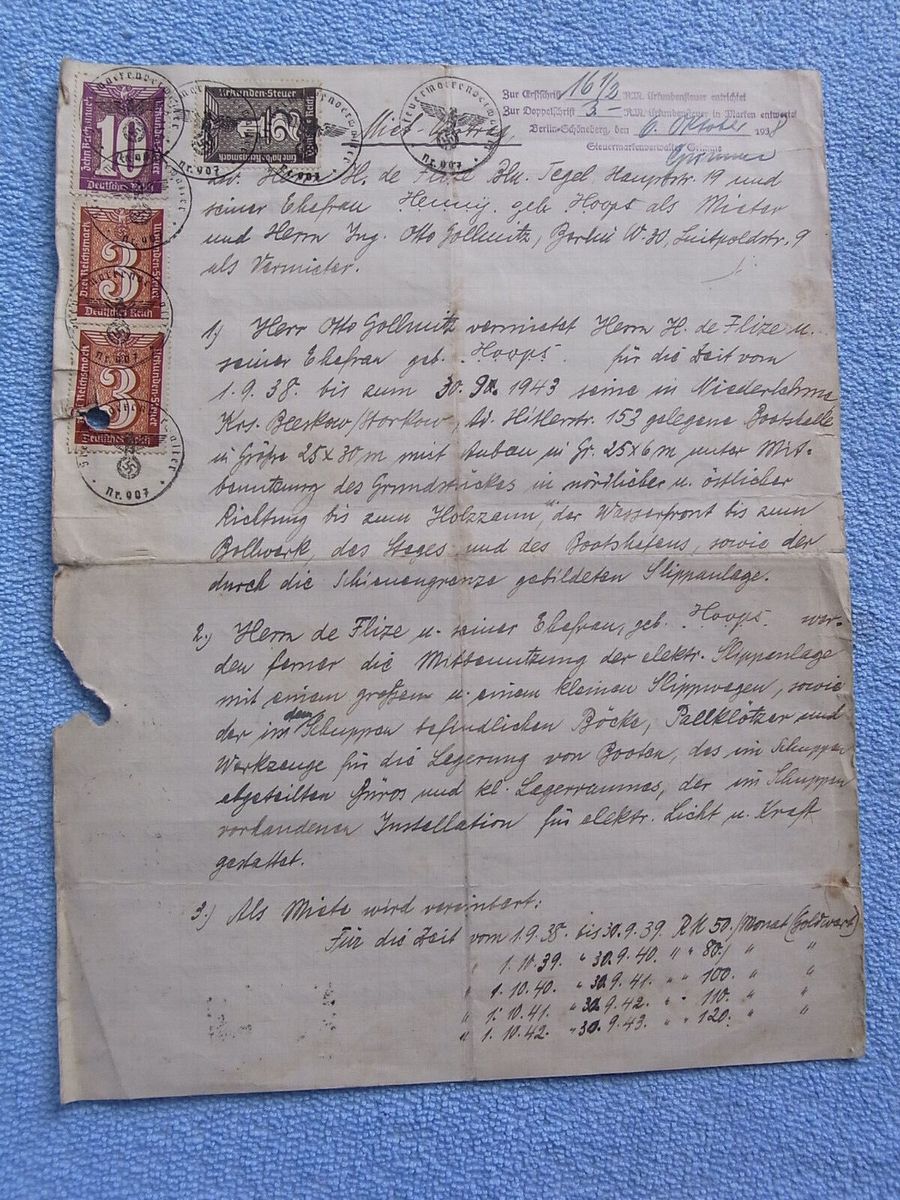 Zehn Reichsmark
Urkunden-Steuer
10
Deutsches Reich
Drei Reichsmark
Urkunden-Steuer
3
Deutsches Reich
Drei Reichsmark
Urkunden-Steuer
3
Deutsches Reich
Urkunden-Steuer
1/2
Steuermarkenverwalter
Nr. 907
Zur Erstschrift 16 1/2 R.M. Urkundensteuer entrichtet
Zur Doppelschrift 3.- R.M. Urkundensteuer in Marken entwertet
Berlin-Schöneberg, den 6. Oktober 1938
Steuermarkenverwalter Grimme
Grimme
Miet-Vertrag
zw. Herrn H. de Flize Bln. Tegel Hauptstr. 19 und
seiner Ehefrau Henny geb Hoops als Mieter
und Herrn Ing. Otto Gollnitz, Berlin W. 30, Luitpoldstr. 9
als Vermieter.
1) Herr Otto Gollnitz vermietet Herrn H. de Flize u.
seiner Ehefrau geb. Hoops. für die Zeit vom
1.9.38. bis zum 30. 9. 1943 seine in Niederlehme
Krs. Beeskow/Storkow, Ad. Hitlerstr. 153 gelegene Bootshalle
in Größe 25x30 m mit Anbau in Gr. 25x6 m unter Mit-
benutzung des Grundstückes in nördlicher u. östlicher
Richtung bis zum Holzzaun, der Wasserfront bis zum
Bollwerk, des Steges und des Bootshafens, sowie der
durch die Schienengrenze gebildeten Slippanlage.
2.) Herrn de Flize u. seiner Ehefrau, geb. Hoops wer-
den ferner die Mitbenutzung der elektr. Slippanlage
mit einem großem u. einem kleinen Slippwagen, sowie
der im dem Schuppen befindlichen Böcke, Pallklötzer und
Werkzeuge für die Lagerung von Booten, des im Schuppen
abgeteilten Büros und kl. Lagerraumes, der im Schuppen
vorhandenen Installation für elektr. Licht u. Kraft
gestattet.
3.) Als Miete wird vereinbart:
Für die Zeit vom 1.9.38. bis 30.9.39. RM 50./Monat (Goldwert)
" 1.10.39. " 30.9.40. " " 80./ " "
" 1.10.40. " 30.9.41. " " 100. " "
" 1.10.41. " 30.9.42. " " 110. " "
" 1.10.42. " 30.9.43. " " 120. " "